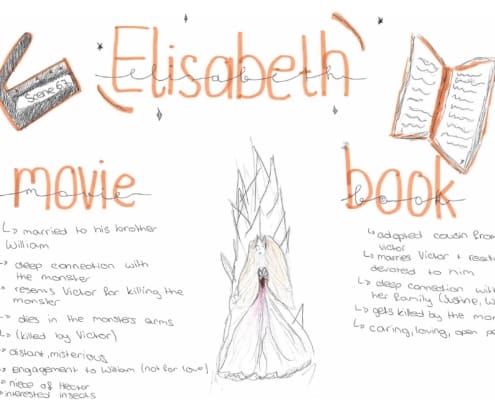 Elisabeth
elisabeth
Scene 67
movie
movie
↳ married to his brother
William
↳ deep connection with
the monster
↳ resents Victor for killing the
monster
↳ dies in the monsters arms
↳ (killed by Victor)
↳ distant, misterious
↳ engagement to William (not for love)
↳ niece of Hector
interested insects
book
book
↳ adopted cousin from
Victor
↳ marries Victor +
devoted to him
↳ deep connection with
her family (Justine, W
↳ gets killed by the mon
↳ caring, loving, open pe